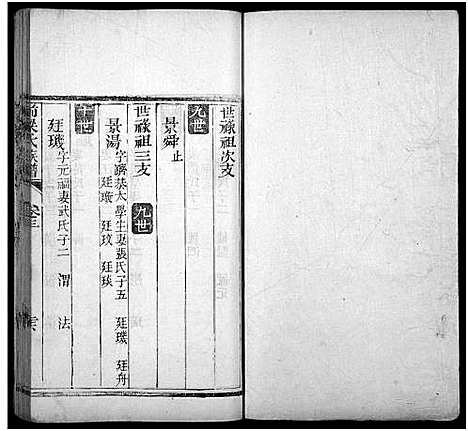 世祿祖次支
九世
景舜止
世祿祖三支
九世
景湯字躋恭太學生妻張氏子五 廷璣 廷舟
廷璥 廷玟 廷琰
十世
廷璣字元福妻武氏子二 渭 法
氏族譜
卷三